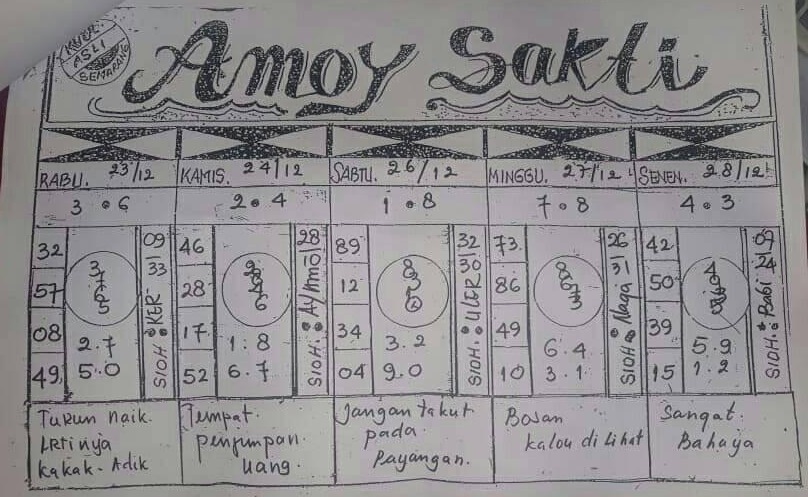 ASLI
SEMARANG
Amoy Sakti
RABU. 23/12
KAMIS. 24/12
SABTU. 26/12
MINGGU. 27/12
SENEN. 28/12
3 • 6
2 • 4
1 • 8
7 • 8
4 • 3
32
57
08
49
3
7
6
5
2.7
5.0
SIOH. KER 33 | 09
46
28
17
52
1:8
6.7
89
12
34
04
3.2
9.0
SIOH: ULER 30 32
73
86
49
10
8
6
7
3
6.4
3.1
SIOH Naga 31 26
42
50
39
15
5.9
1.2
SIOH. Babi 24 07
Turun naik.
Artinya
kakak-Adik
Tempat.
penjumpan
uang.
Jangan takut
pada
Bayangan.
Bosan
kalou di Lihat
Sangat.
Bahaya